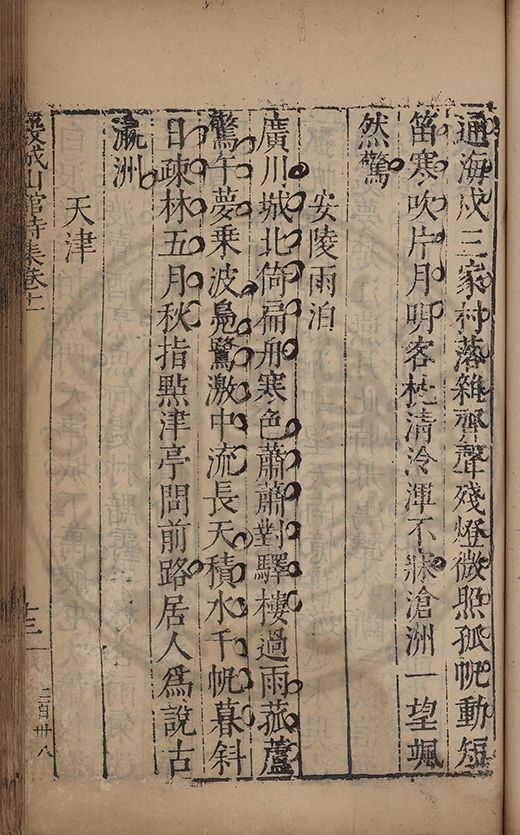 通海戍三家村落雜齊聲殘燈微照孤帆動短
笛寒吹片月明客枕清泠渾不寐滄洲一望颯
然驚
安陵雨泊
廣川城北倚扁舟寒色蕭蕭對驛樓過雨菰蘆
驚午夢乘波鳧鷖激中流長天積水千帆暮斜
日疎林五月秋指點津亭問前路居人爲說古
瀛洲
天津
穀城山館詩集卷十一
十三
二百卅八